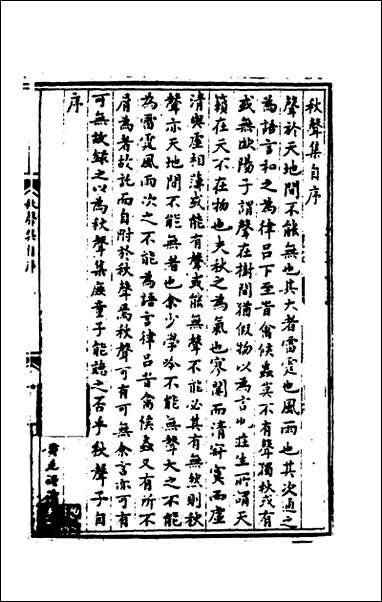 秋聲集自序
聲於天地間不能無也其大者雷霆也風雨也其次通之
為語言和之為律呂下至時禽候蟲莫不有聲獨秋或有
或無歐陽子謂聲在樹間猶假物以為言也莊生所謂天
籟在天不在物也夫秋之為氣也寥闃而清寂寞而虛
清與虛相蕩或能有聲或能無聲不能必其有無然則秋
聲亦天地間不能無者也余少學吟不能無聲大之不能
為雷霆風雨次之不能為語言律呂時禽候蟲又有所不
屑為者故託而自附於秋聲焉秋聲可有可無余言亦可有
可無故錄之以為秋聲集庶童子能聽之否乎秋聲子自
序
秋聲集自序